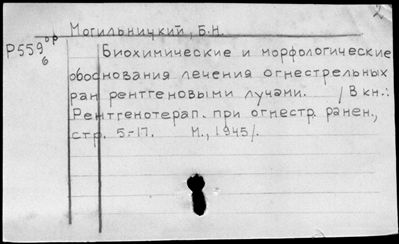 ор Могильницкий, Б.Н.
Р559
б
Биохимические и морфологические
обоснования лечения огнестрельных
ран рентгеновыми лучами. /В кн.:
Рентгенотерап. при огнестр. ранен.,
стр. 5-17. М., 1945/.